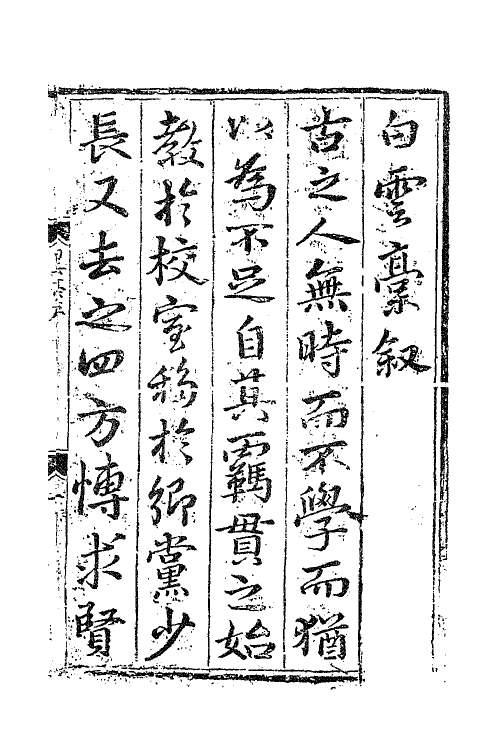 白雲藁叙
古之人無時而不學而猶
以為不足自其羈貫之始
教於校室移於鄉黨少
長又去之四方博求賢